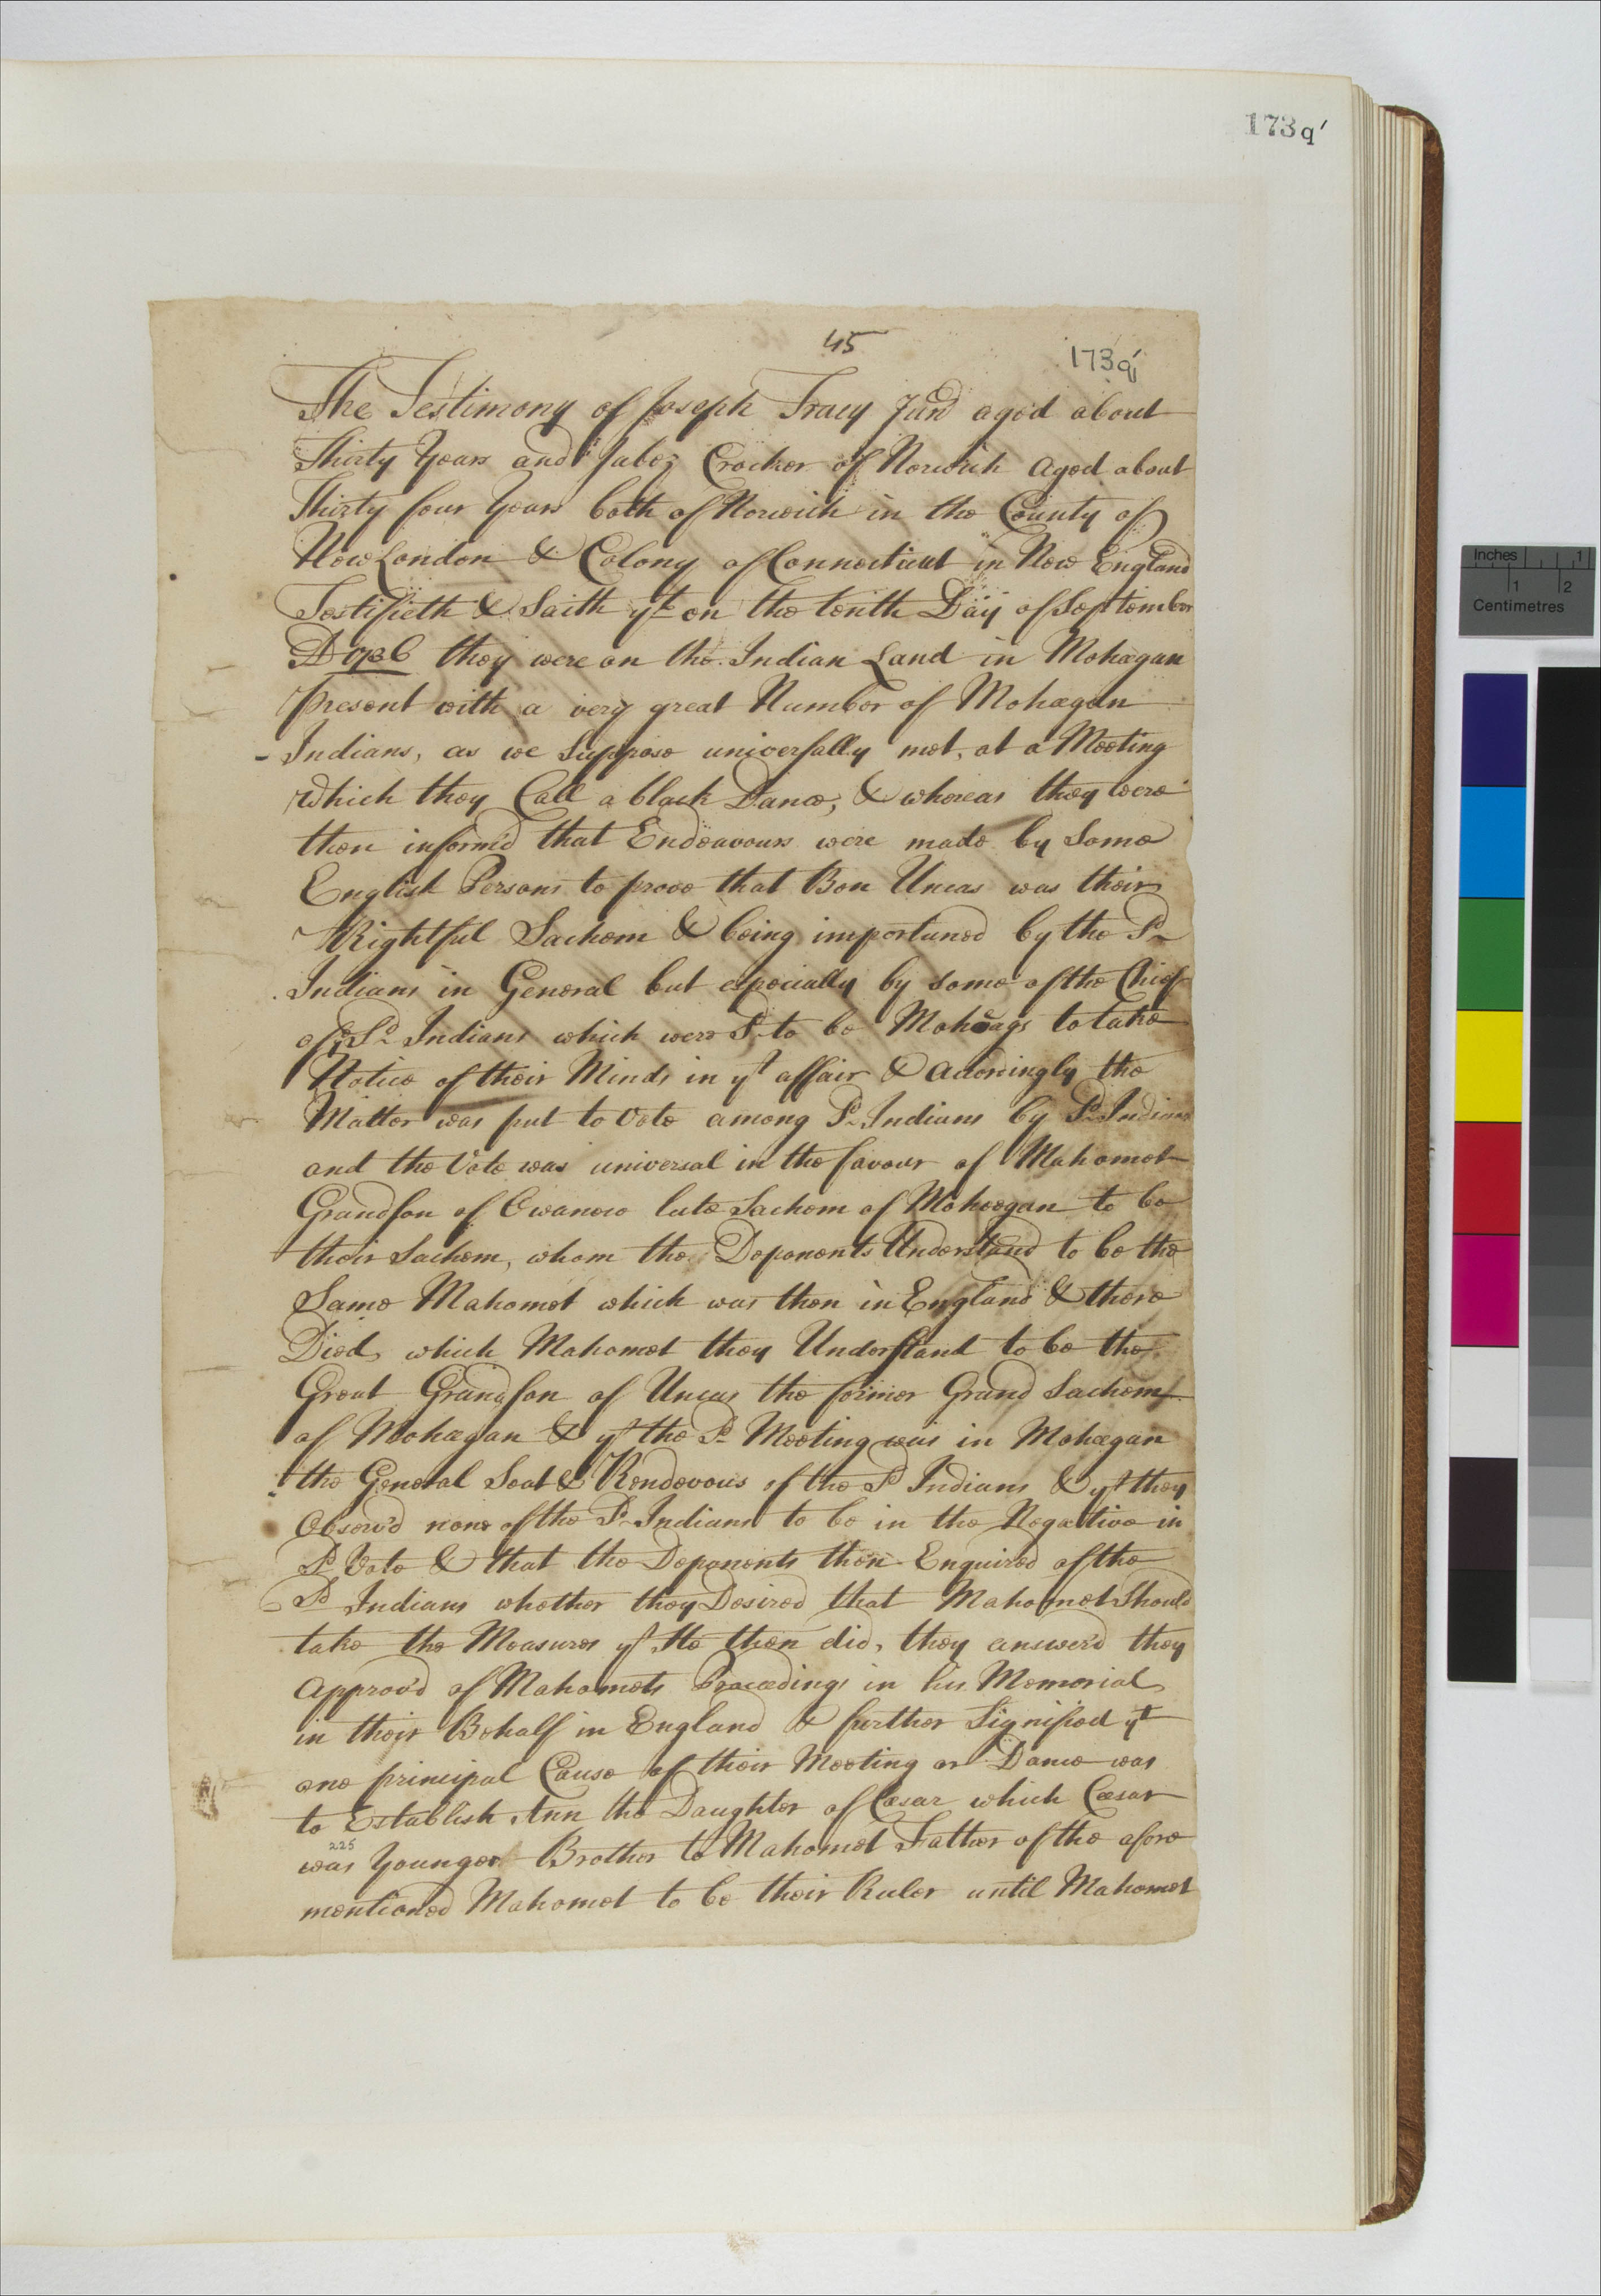 173 q'
45
173 q'
The Testimony of Joseph Tracy Junr aged about
Thirty Years and Jabez Crocker of Norwich aged about
Thirty four Years both of Norwich in the County of
New London & Colony of Connecticut in New England
Testifieth & Saith yt on the tenth Day of September
AD 1736 they were on the Indian Land in Mohegan
present with a very great Number of Mohegan
Indians, as we suppose universally met, at a Meeting
which they Call a black Dance, & whereas they were
then inform'd that Endeavours were made by Some
English Persons to prove that Ben Uncas was their
Rightful Sachem & being importuned by the Sd
Indians in General but especially by some of the Chief
of ye Sd Indians which were Sd to be Moheags to take
Notice of their Minds in yt affair & accordingly the
Matter was put to Vote among Sd Indians by Sd Indians
and the Vote was universal in the favour of Mahomet
Grandson of Owaneco late Sachem of Moheegan to be
their Sachem, whom the Deponents Understand to be the
Same Mahomet which was then in England & there
Died, which Mahomet they Understand to be the
Great Grandson of Uncas the former Grand Sachem
of Mohegan & yt the Sd Meeting was in Mohegan
the General Seat & Rendevous of the Sd Indians & yt they
Observ'd none of the Sd Indians to be in the Negative in
Sd Vote & that the Deponents then Enquired of the
Sd Indians whether they Desired that Mahomet Should
take the Measures yt He then did, they answer'd they
Approv'd of Mahomets Proceedings in his Memorial
in their Behalf in England & further Signified yt
one principal Cause of their Meeting or Dance was
to Establish Ann the Daughter of Cæsar which Cæsar
225
was Younger Brother to Mahomet Father of the afore
mentioned Mahomet to be their Ruler until Mahomet
Inches 1
1 2
Centimetres